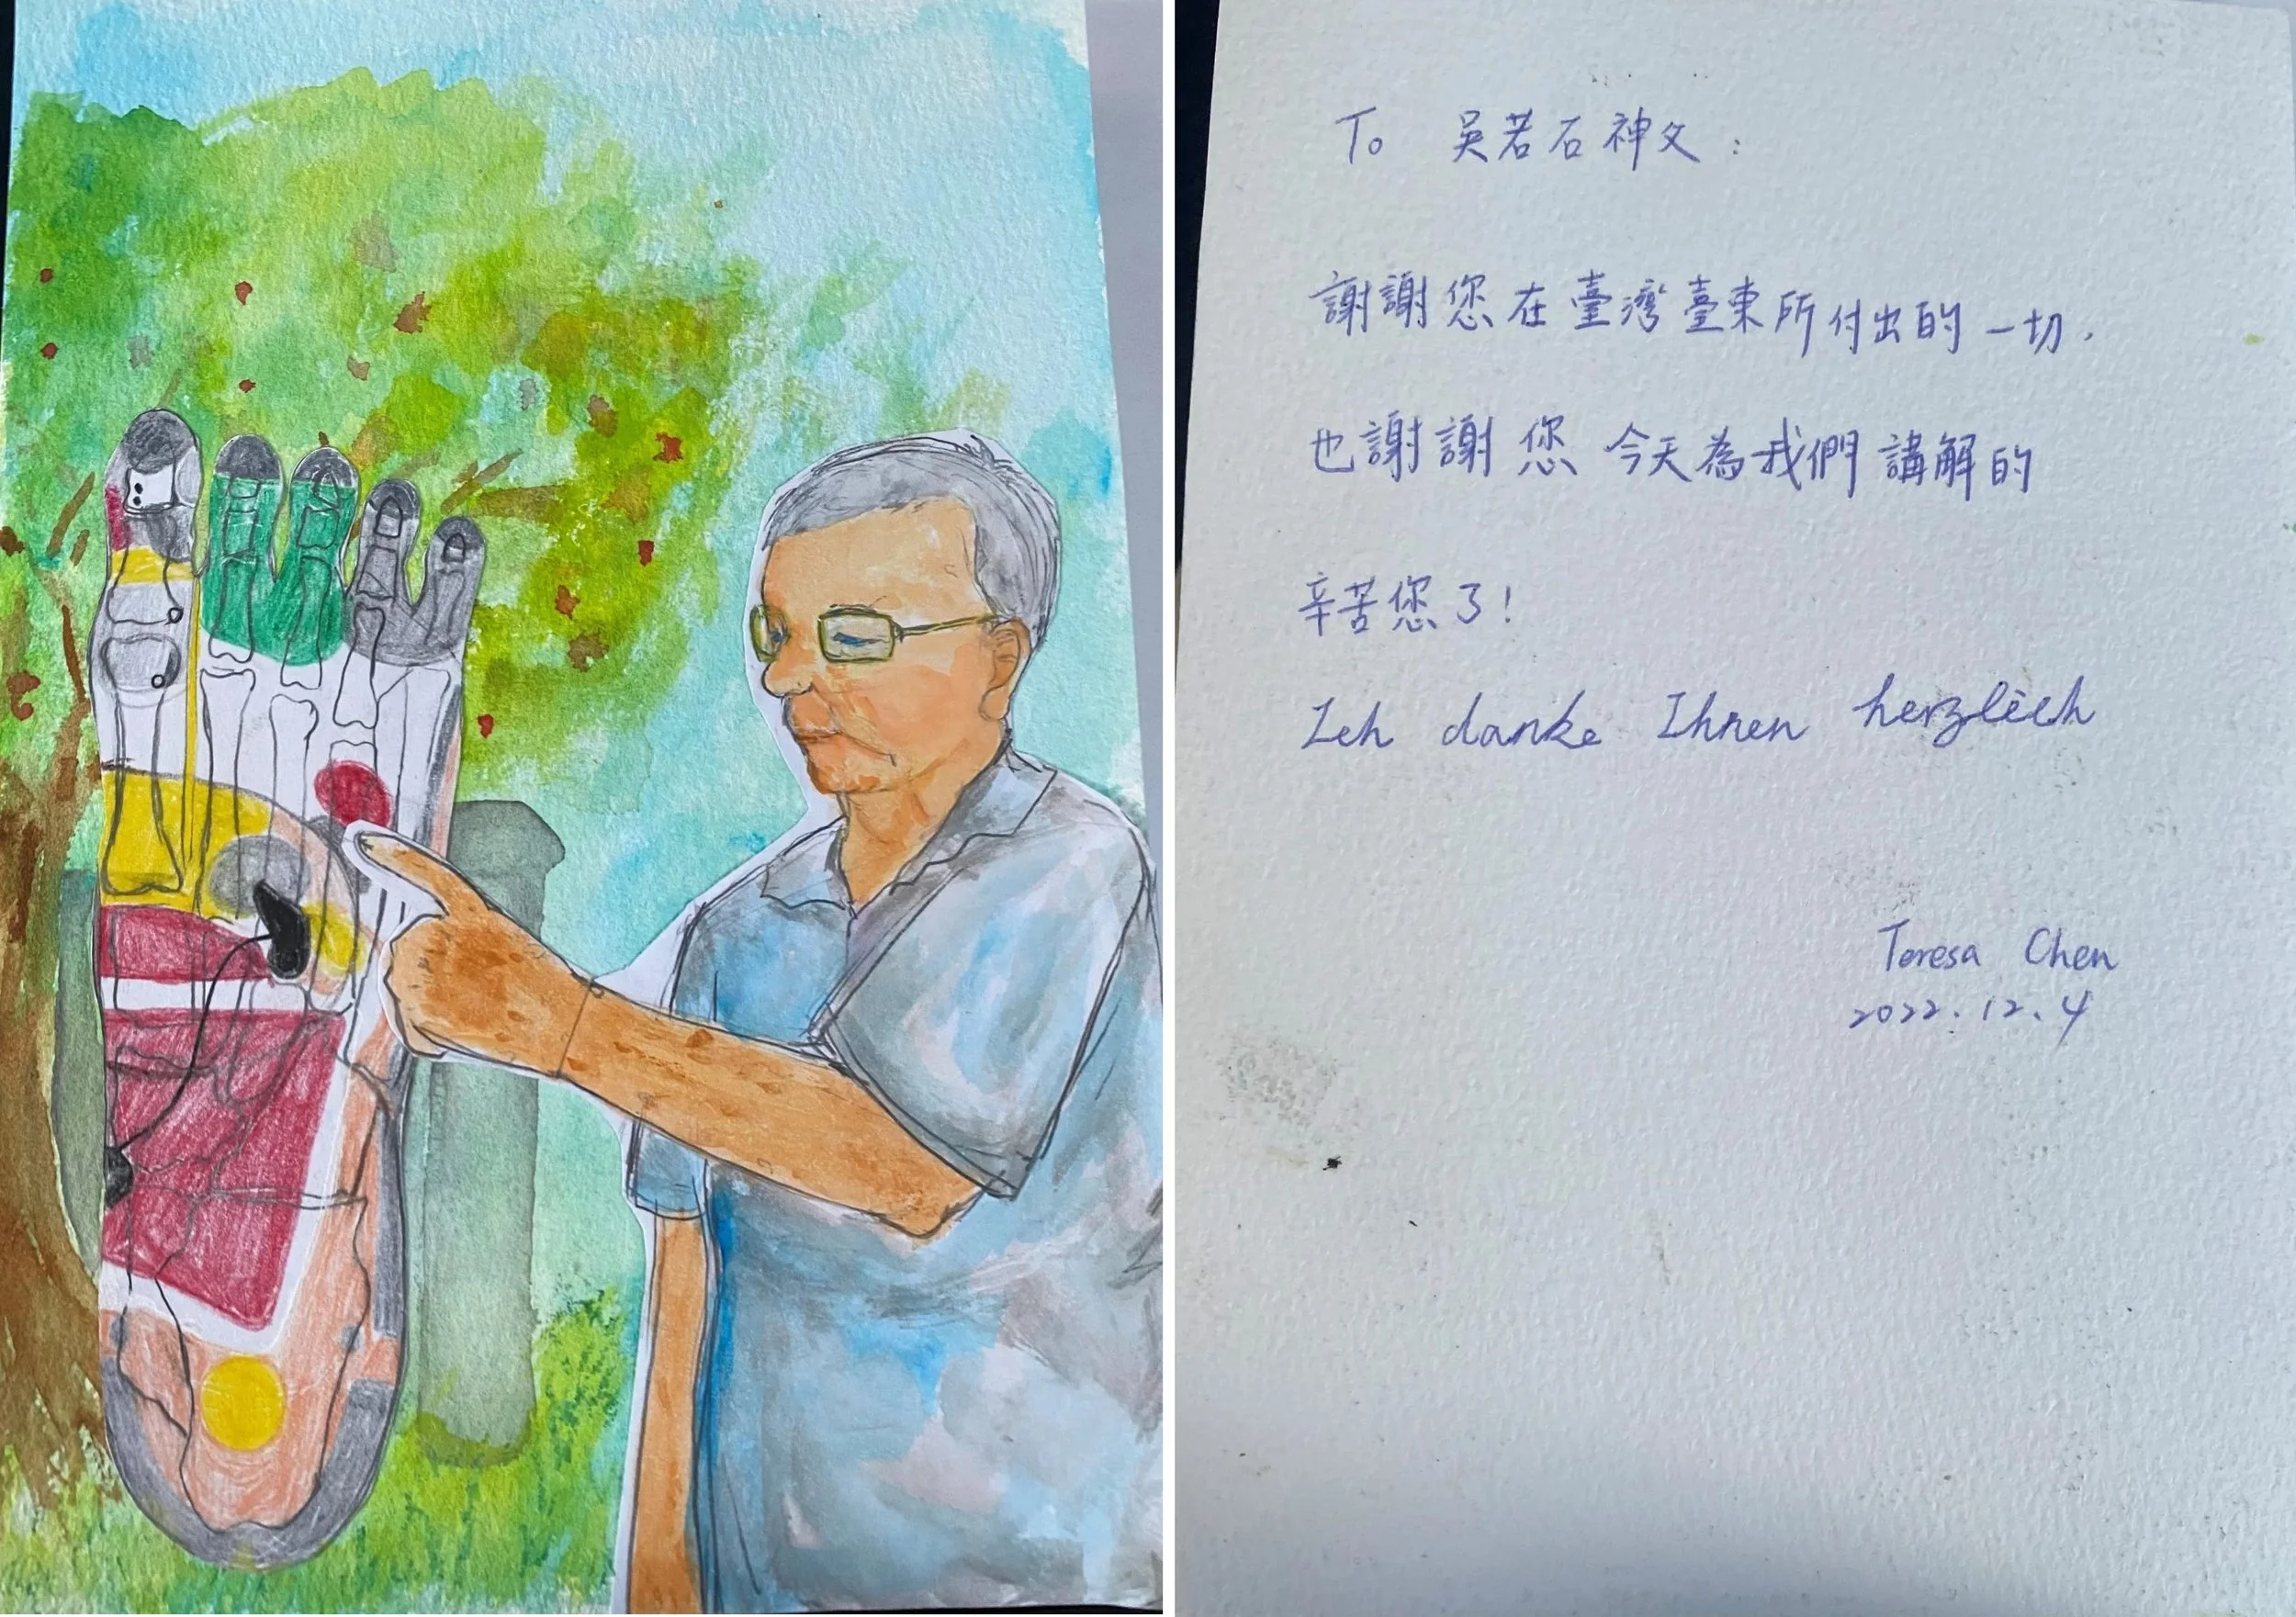 To 吳若石神父:
謝謝您在臺灣臺東所付出的一切.
也謝謝您今天為我們講解的
辛苦您了!
Ich danke Ihnen herzlich
Teresa Chen
2022.12.4